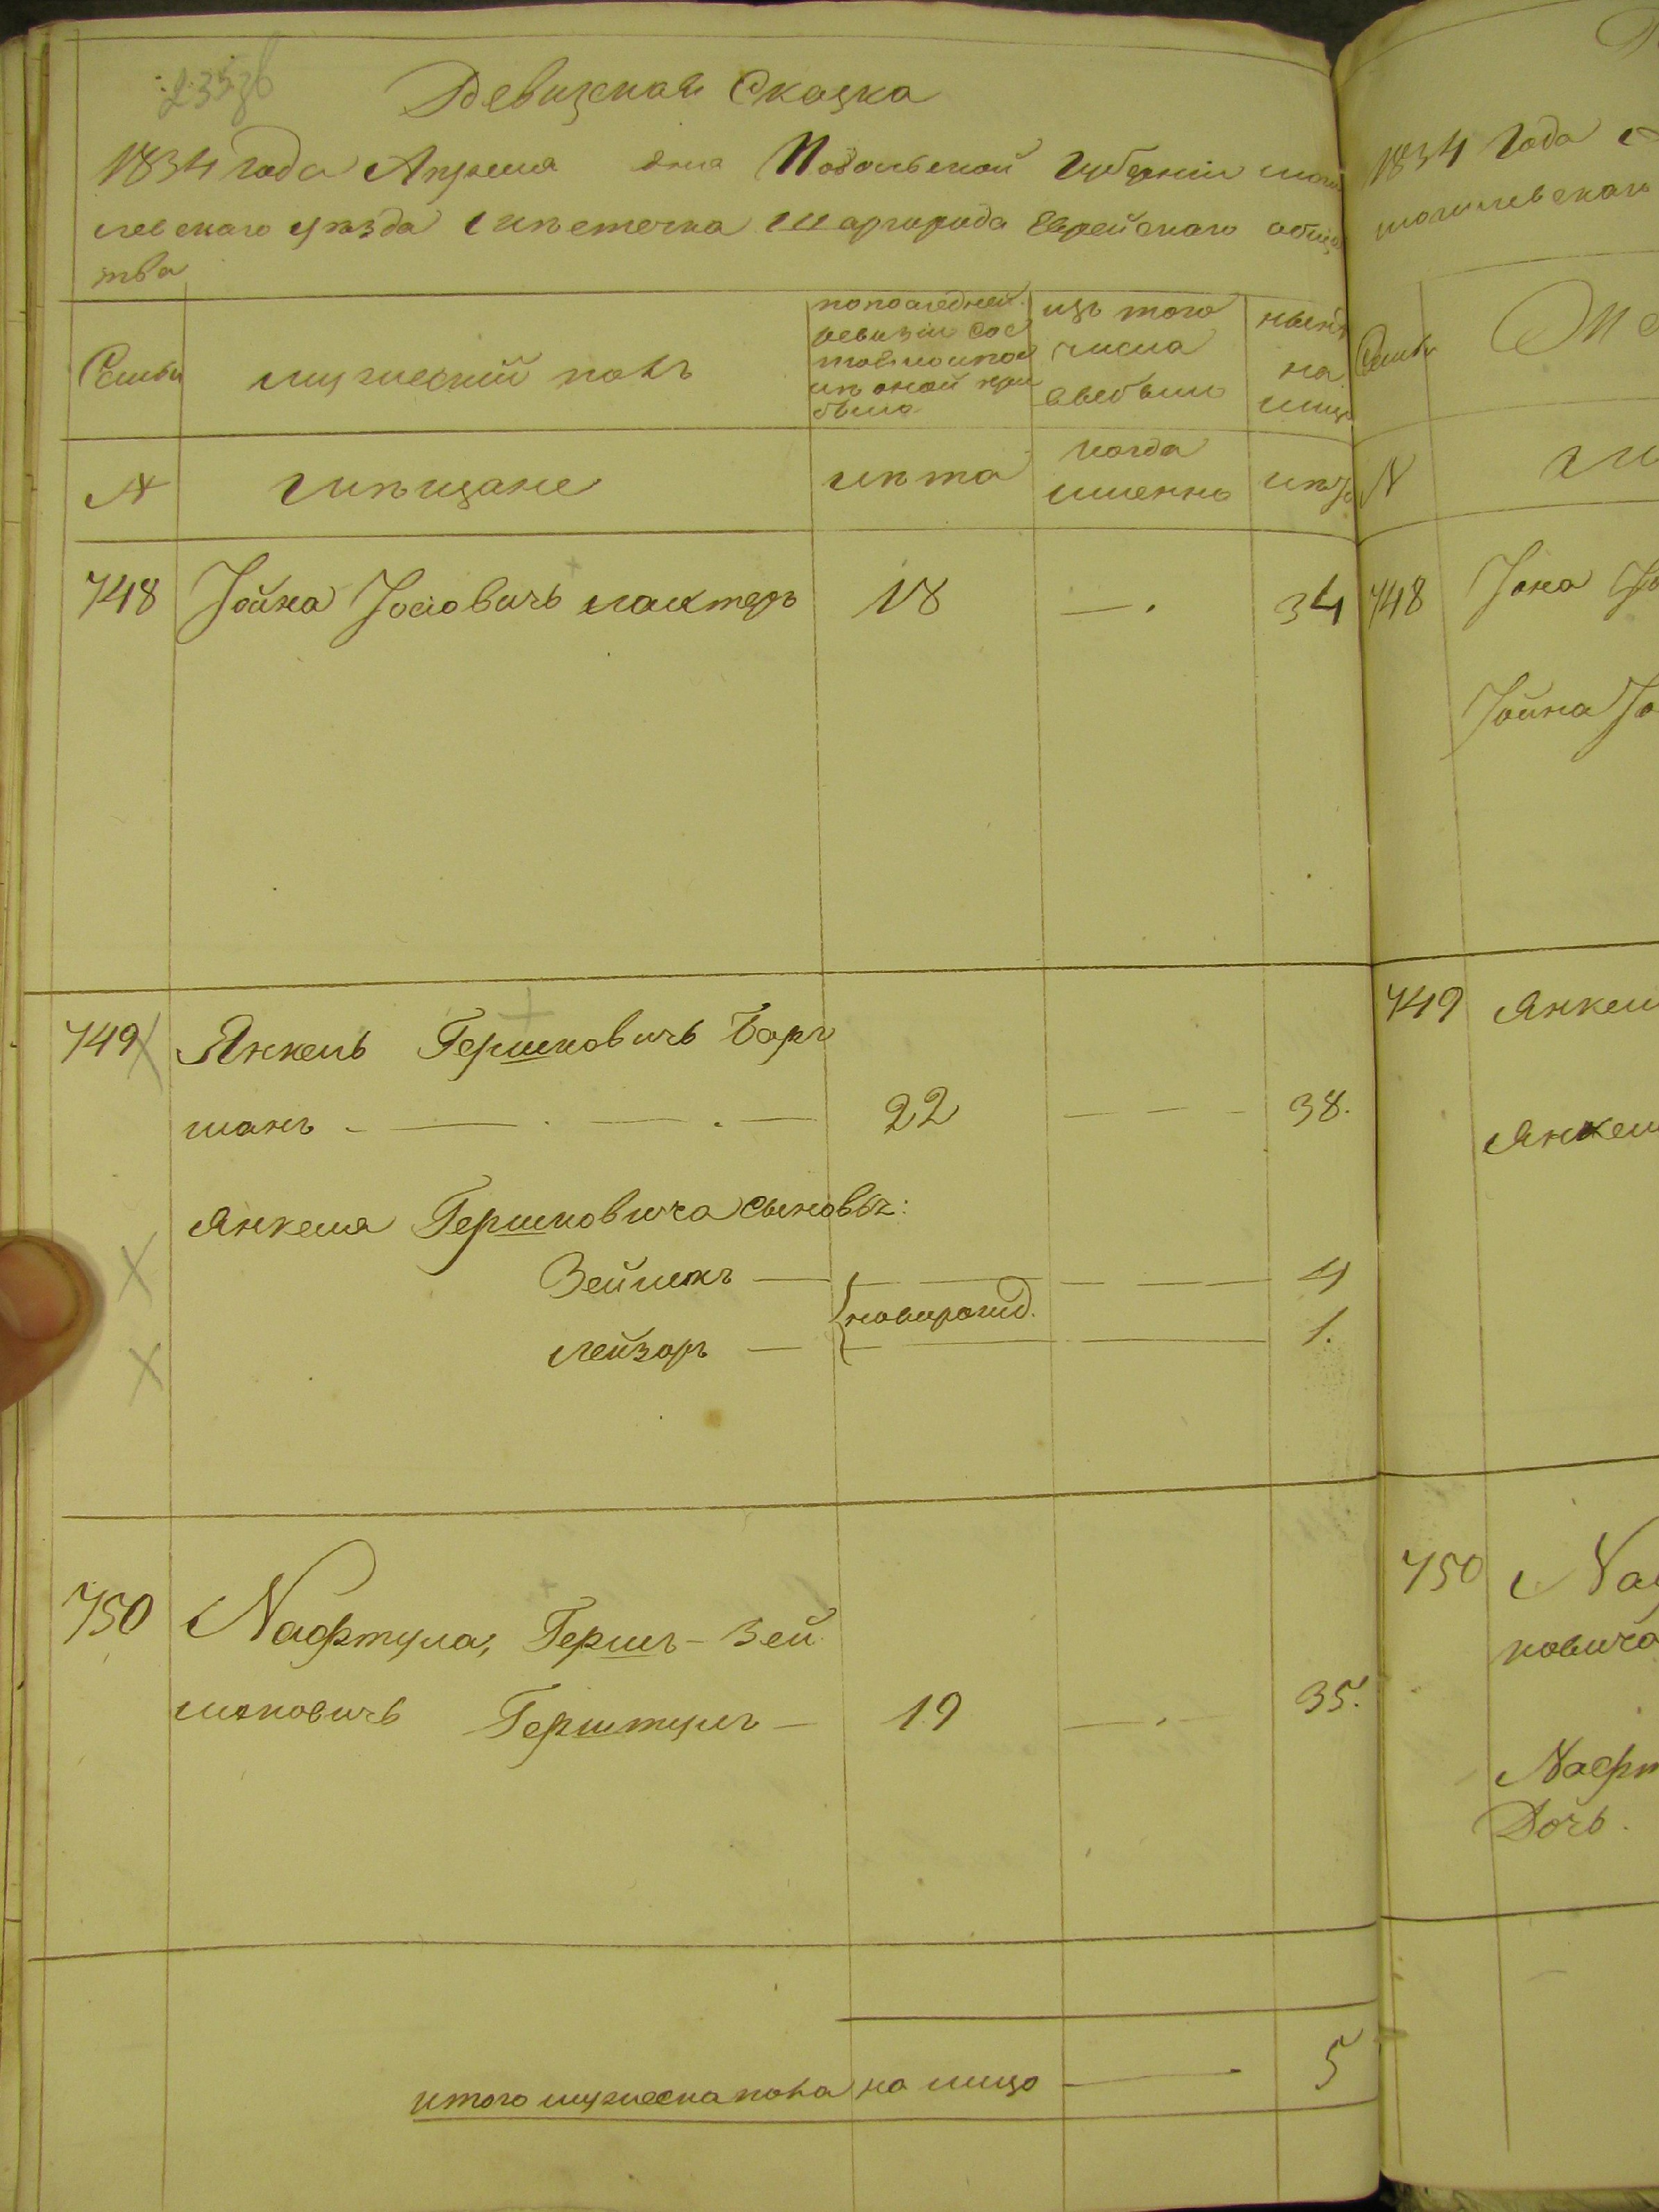 Ревизская Сказка
1834 года Апреля дня Подольской Губернии моги
левскаго уѣзда мѣстечка Шаргорода Еврейскаго общес
тва
Семьи
мужескій полъ
по последней
ревизіи сос
тояло и после
оной при
было
изъ того
числа
выбыло
нынѣ
на
лицо
№
мѣщане
лѣта
когда
именно
лѣта
748 Іойна Іосіовичъ лактеръ 18 — . 34
749 Янкель Гершковичъ Барг
манъ - — . — . — 22 — — — 38.
Янкеля Гершковича сыновья:
Зейликъ — — — — — 4
новорожд.
Лейзоръ — — — 1.
750 Нафтула, Гершъ-Зей
ликовичъ — 19 — . — 35.
итого мужеска пола на лицо — 5
1834 Года
могилевскаго
Семьи
№
748 Іона
Іойна Іо
749 Янкел
Янкел
750 На
ковича
Нафт
Дочь.